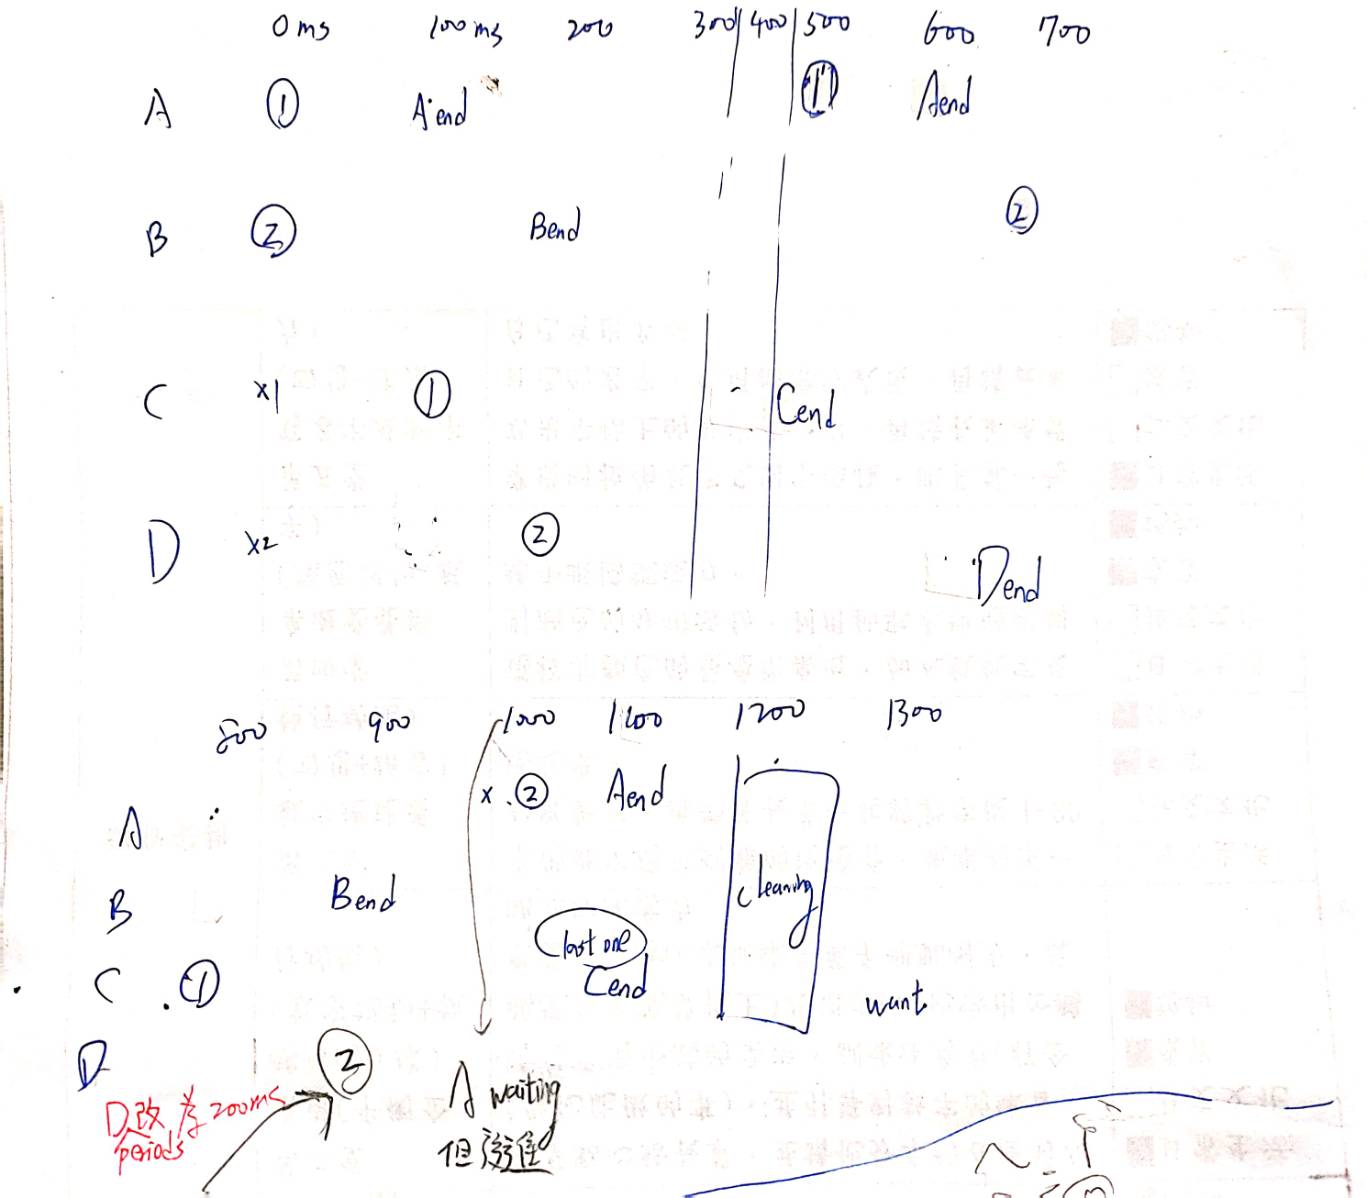 0ms 100ms 200 300 400 500 600 700
A ① A end ① Aend
B ② Bend ②
C x1 ① Cend
D x2 ② Dend
800 900 1000 1100 1200 1300
A x ② Aend
B Bend cleaning
last one
C ① Cend want
D ②
D改为200ms
periods
A waiting
但